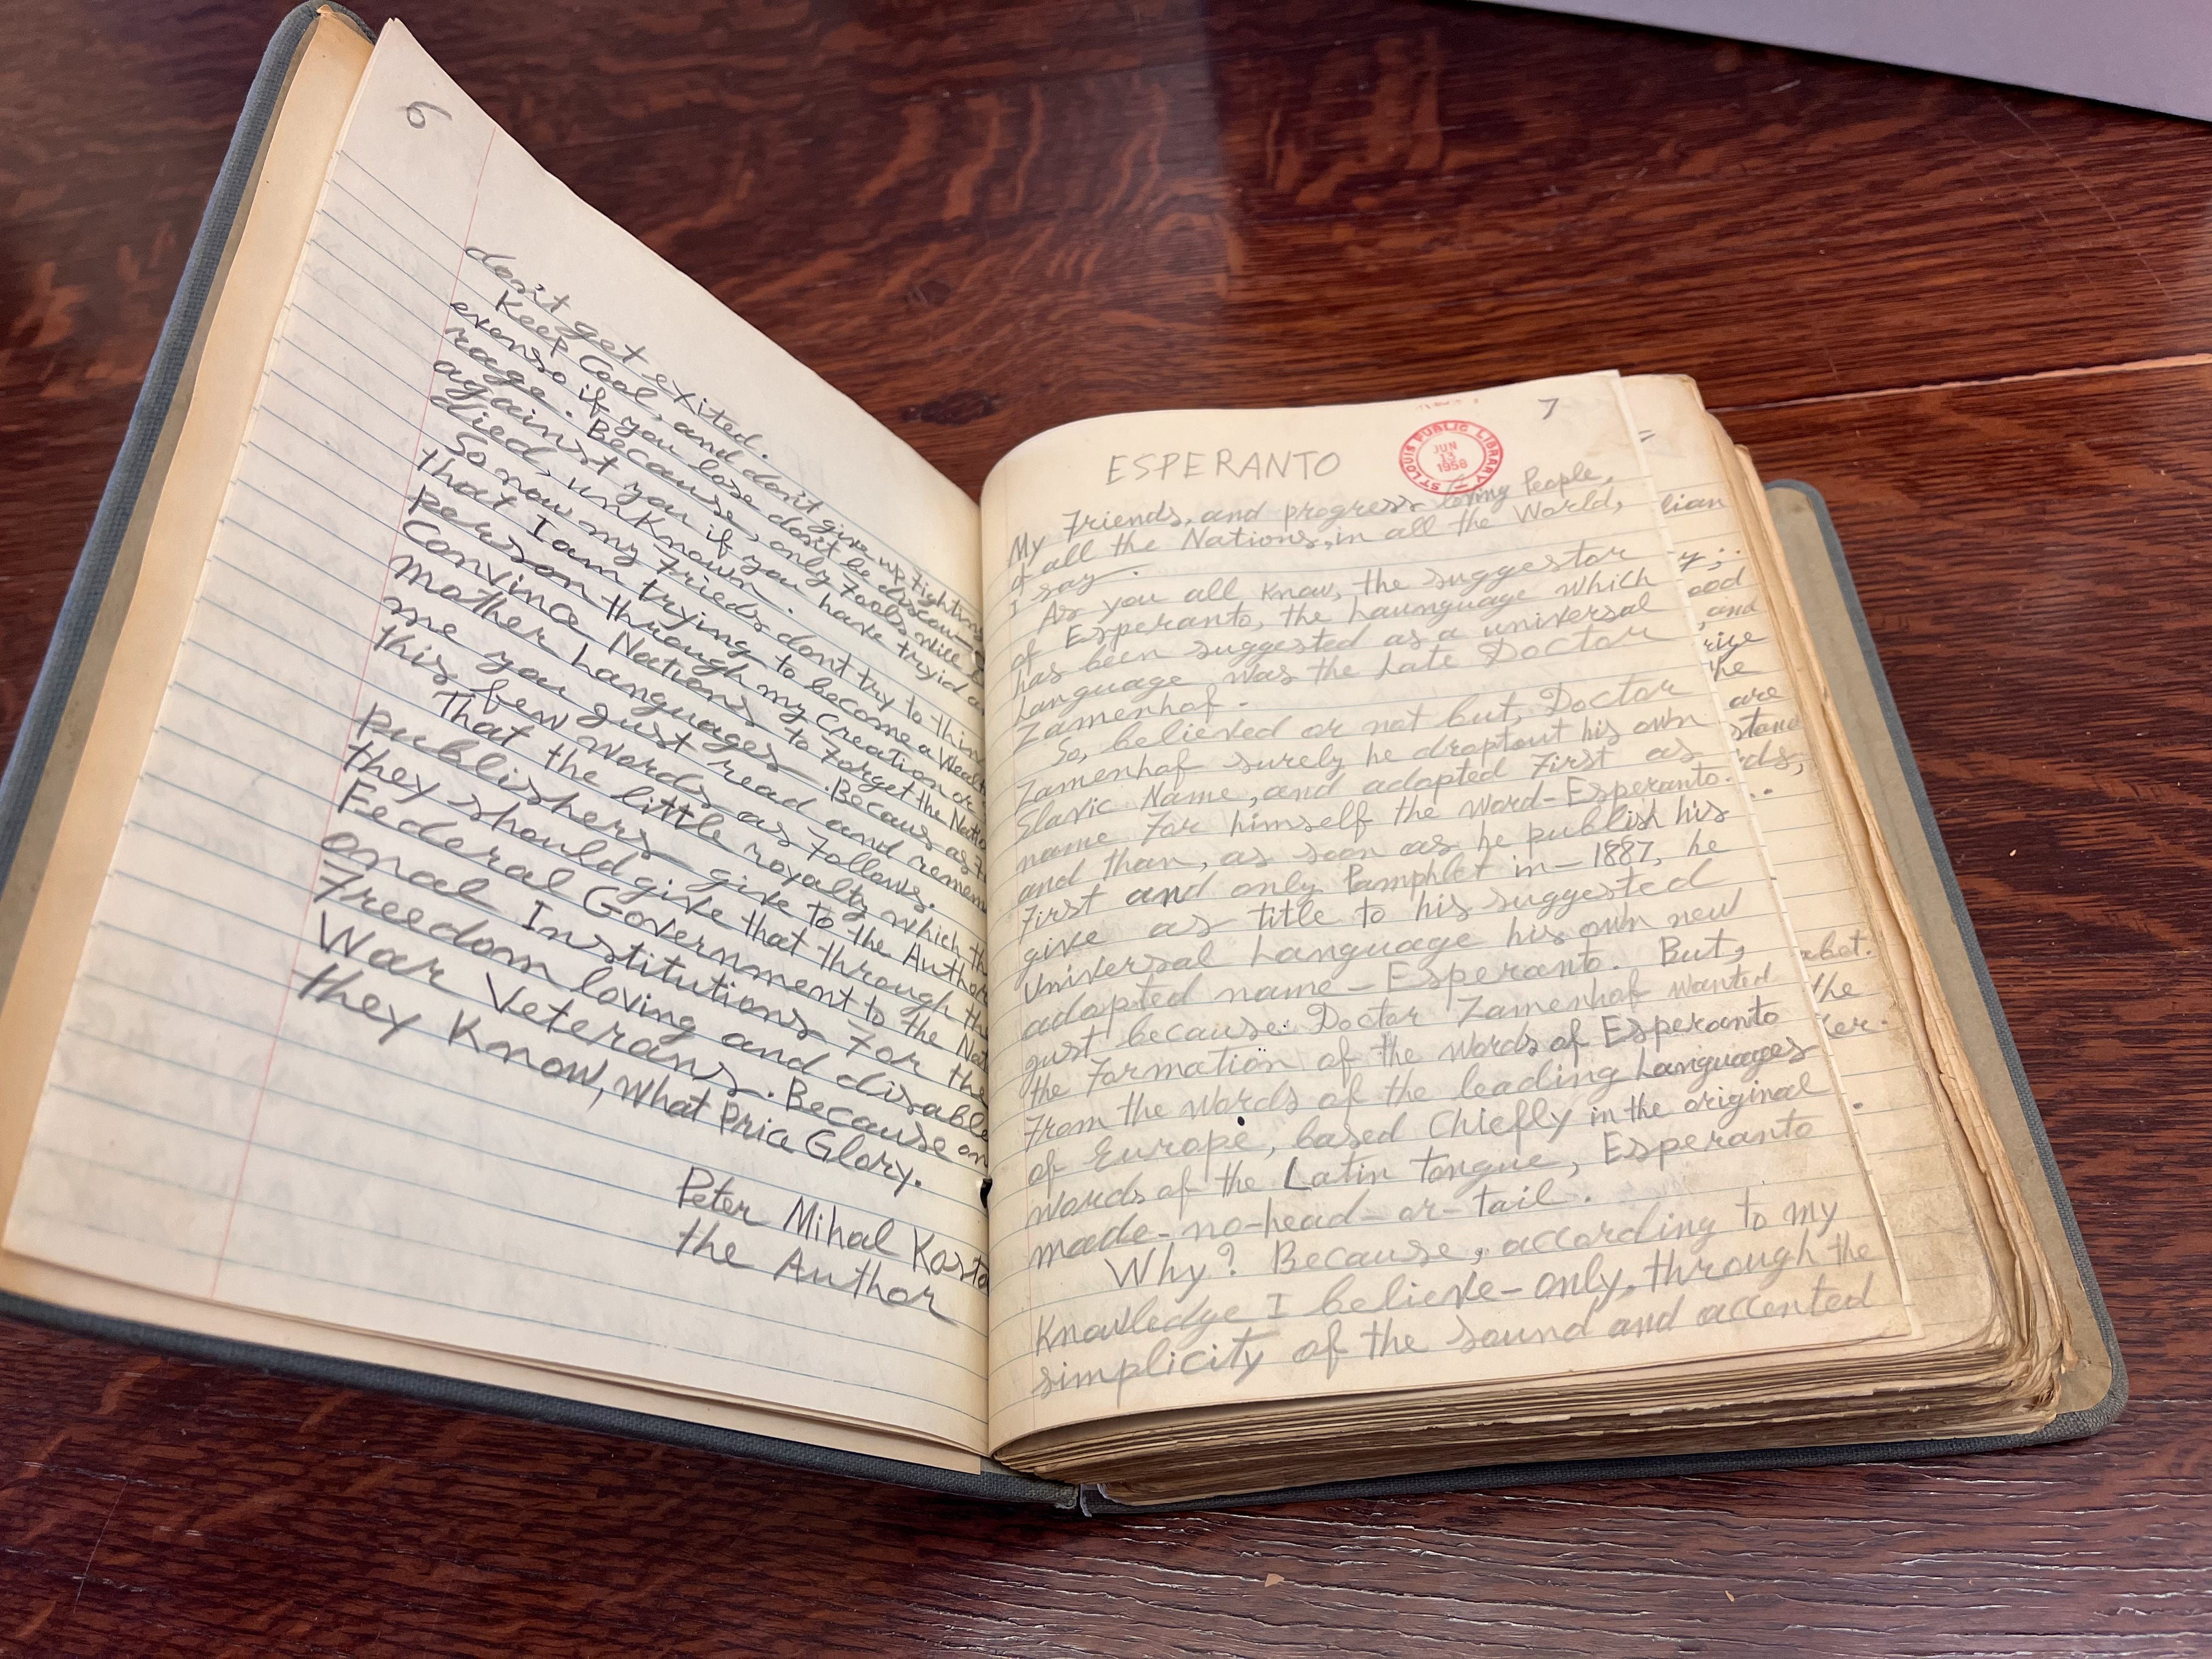 6
don't get exited.
Keep Cool, and don't give up fighting
evenso if you lose don't be discou-
rage. Because, only Fools will
against you if you have tryid a
died, unKnown.
So now my Frieds dont try to thin
that I am trying to become a Wealt
person through my Creation or
Convinc Nations to Forget the Natio
mother Languages. Becaus as F
me you gust read and remem
this few words as Follows.
That the little royalty which th
publishers give to the Author
they should give that through th
Federal Government to the Nat
onal Institutions For the
Freedom loving and disable
War Veterans. Because on
they Know, What Price Glory.
Peter Mihal Kosto
the Author
7
ESPERANTO
ST. LOUIS PUBLIC LIBRARY
JUN
13
1958
My Friends, and progress loving People,
of all the Nations, in all the World,
I say.
As you all know, the suggestor
of Esperanto, the Launguage which
has been suggested as a universal
Language, was the Late Doctor
Zamenhof.
So, believed or not but, Doctor
Zamenhof surely he droptout his own
Slavic Name, and adopted First as
name For himself the word-Esperanto.
and than, as soon as he publish his
First and only Pamphlet in - 1887, he
give as title to his suggested
Universal Language his own new
adopted name - Esperanto. But,
gust because Doctor Zamenhof wanted
the Formation of the words of Esperanto
From the words of the leading Languages
of Europe, based Chiefly in the original
words of the Latin tongue, Esperanto
made-no-head-or-tail.
Why? Because, according to my
Knowledge I believe-only, through the
simplicity of the sound and accented
lian
y;.
ood
, and
rize
the
are
stand
rds,
abet.
the
ter.